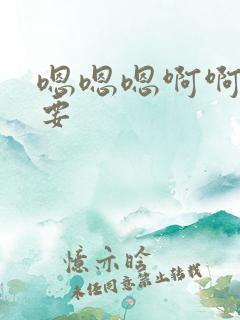 嗯嗯嗯啊啊
要
憶亦晗
未经同意禁止转载